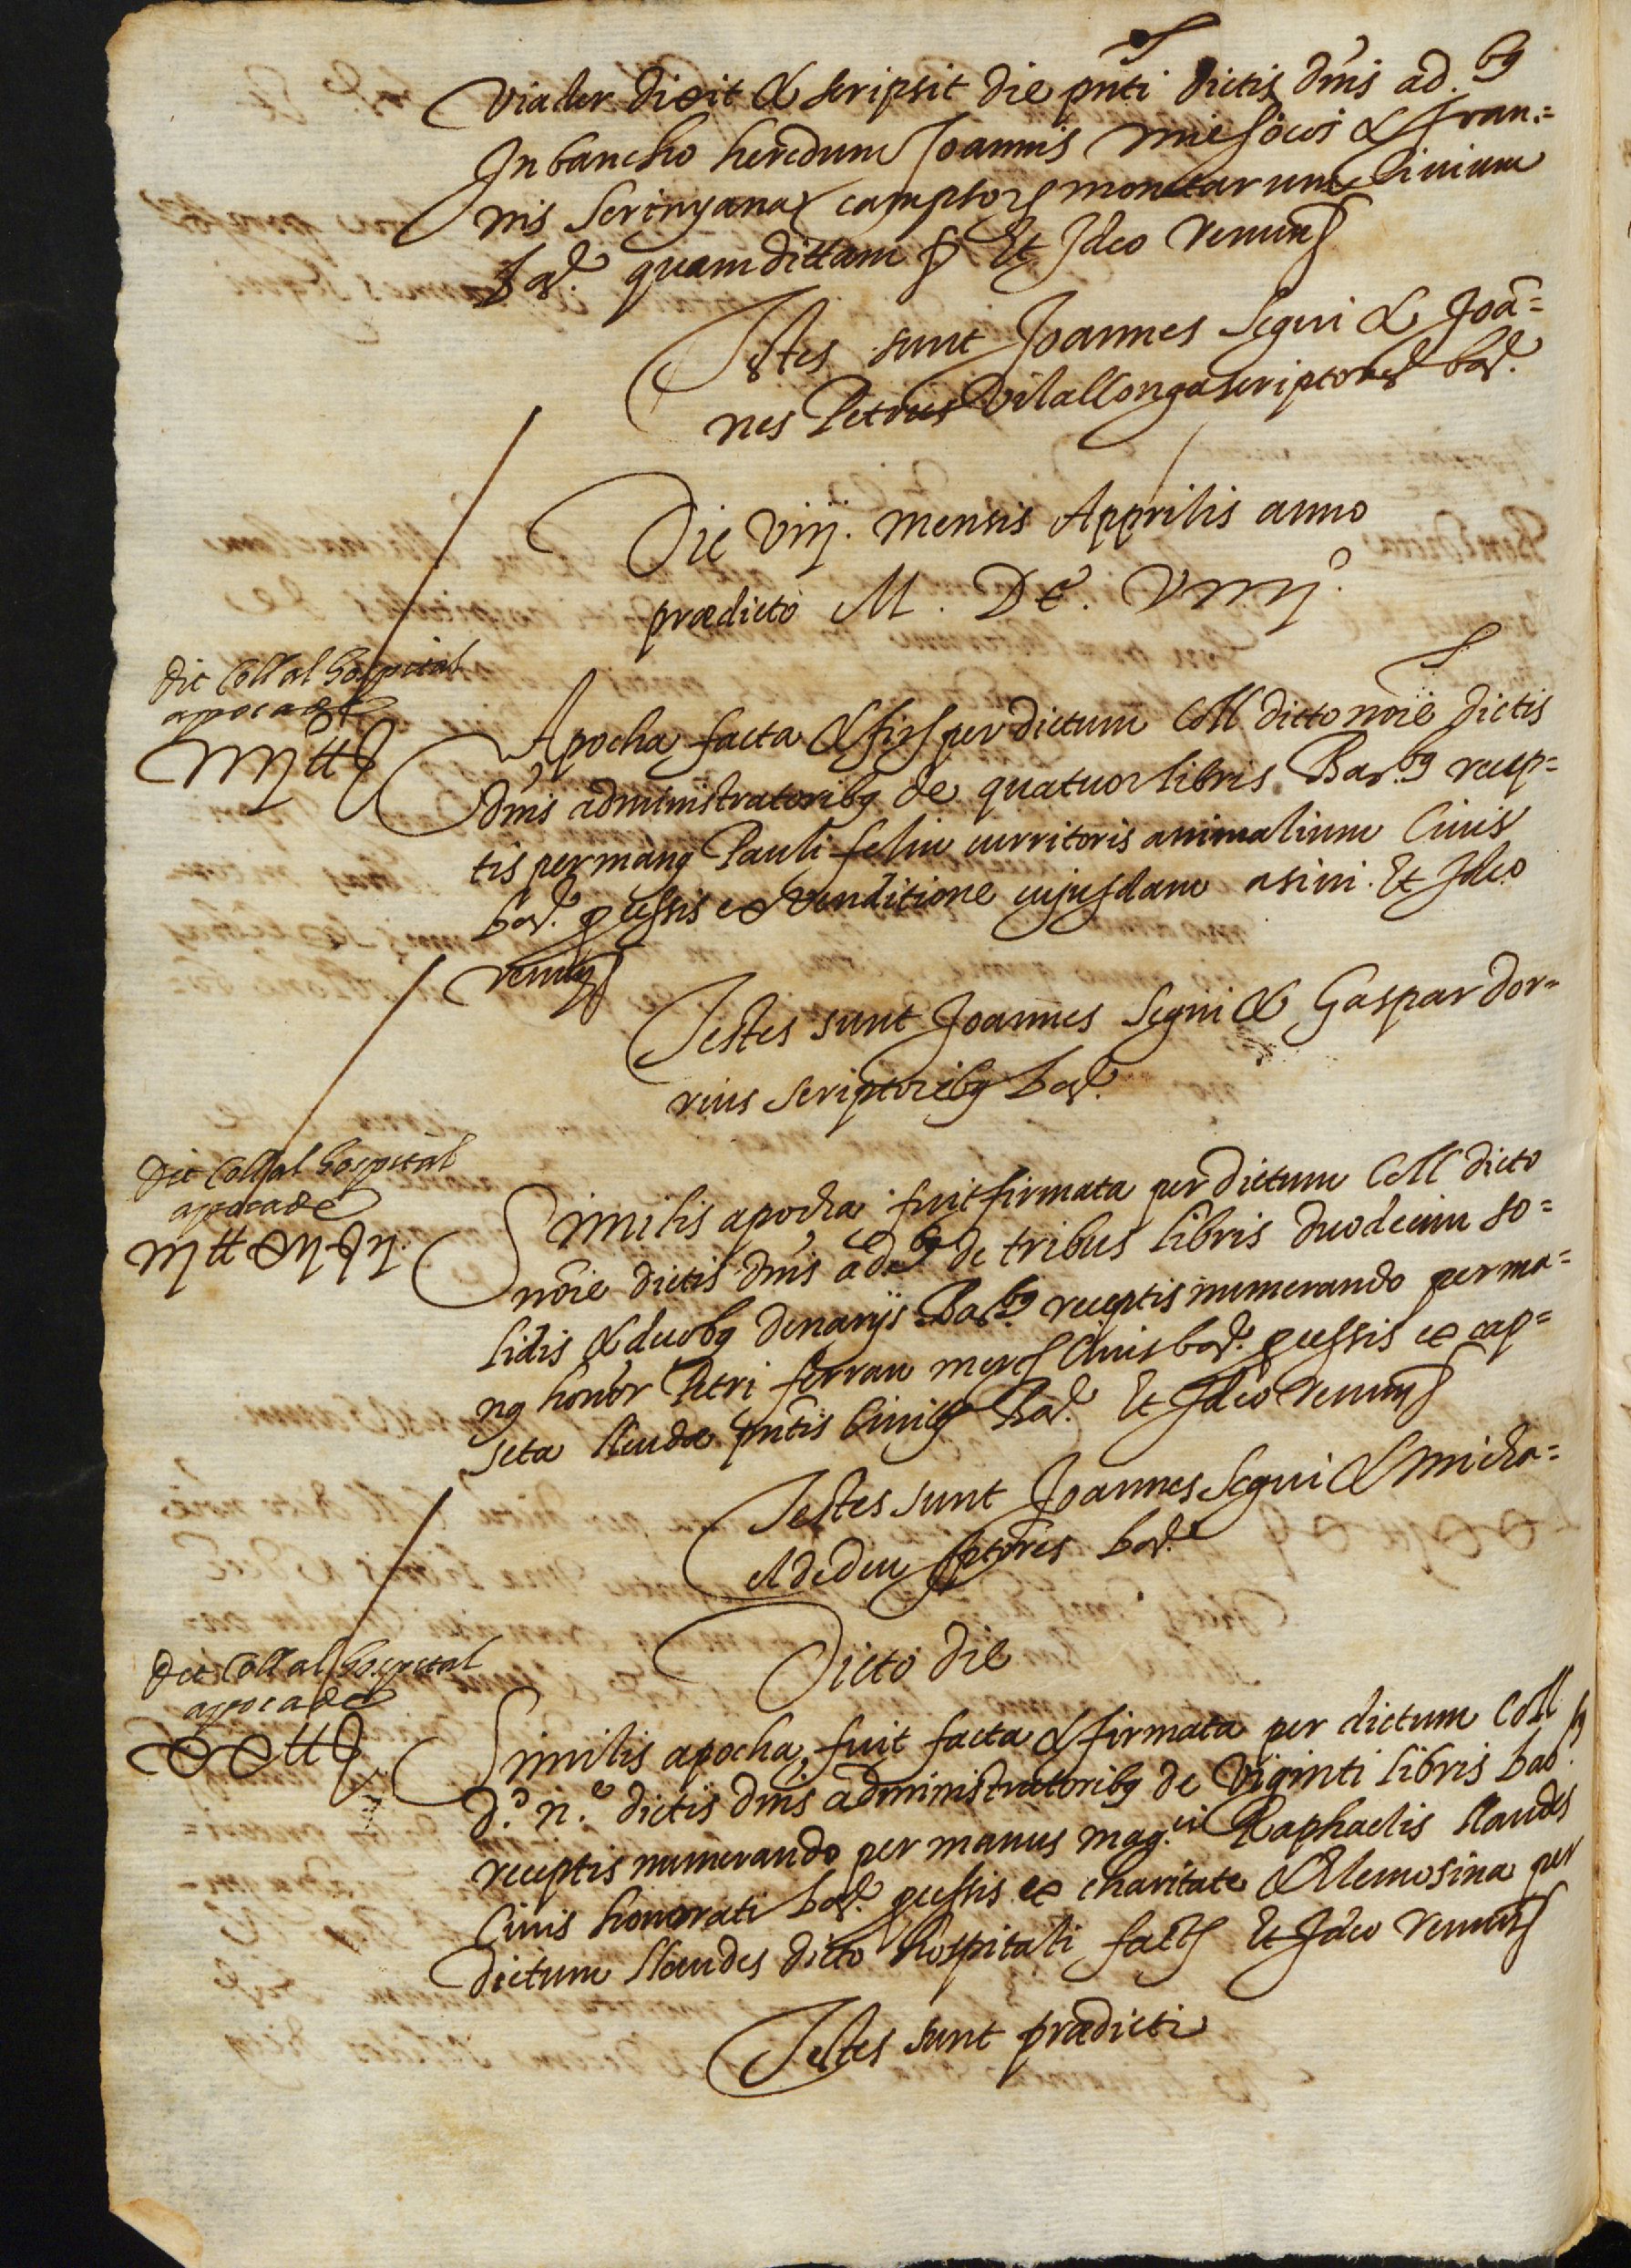 Viader dixit & scripsit die pnti dictis dnis ad.bq
In bancho heredum Joannis mir socis & Fran=
nis Serinyana campsor monetarum Civium
Bar. quam dittam & Et Ideo renun
Testes sunt Joannes Segui & Joā=
nes Petrus Vilallonga scriptores bar.
Die viij. mensis Apprilis anno
prædicto M. DC. Viiij.º
Dit Coll al hospital
appoca de
iiij ll
Apocha facta & fir per dictum Coll dicto noīe dictis
dnis administratoribq de quatuor libris Bar.bq recep=
tis per manq Pauli feliu curritoris animalium Civis
bar. pcessis ex venditione cujusdam asini. Et Ideo
renun
Testes sunt Joannes Segui & Gaspar dor=
rius scriptoribq bar.
Dit Coll al hospital
apoca de
iij ll xij ß ij.
Similis apocha fuit firmata per dictum Coll dicto
noīe dictis dnis ad.bq de tribus libris duodecim so=
lidis & duobq denarijs Bar.bq receptis numerando per ma=
nq honor Petri ferran mer Civis bar. pcessis ex cap=
seta lleudæ pntis Civit Bar. Et Ideo renun
Testes sunt Joannes Segui & Micha=
el dedeu sptores bar.
Dicto die
Dit Coll al hospital
appoca de
xx ll
Similis apocha fuit facta & firmata per dictum Coll
d.º n.e dictis dnis administratoribq de viginti libris bar.bq
receptis numerando per manus mag.ci Raphaelis llaudes
Civis honorati bar. pcessis ex charitate & elemosina per
dictum llaudes dicto hospitali fact Et Ideo renun
Testes sunt prædicti